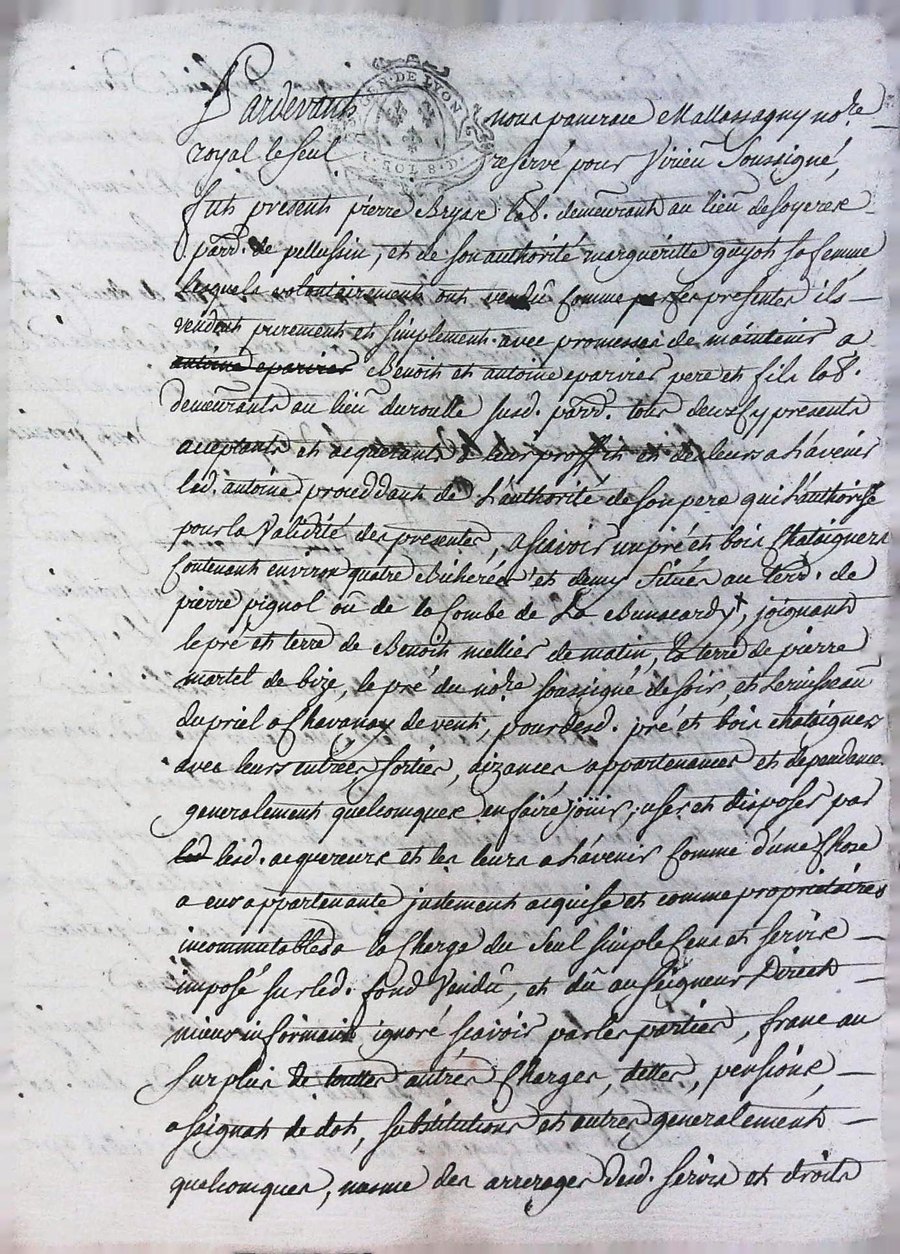 GEN. DE LYON
1. SOL 8. D.
Pardevant nous pancrace Mallassagny no.re
royal le seul reservé pour Virieu soussigné,
fut present pierre Bryas lab. demeurant au lieu de soyeres
parr. de pellussin, et de son authorité marguéritte guyot sa femme
lesquels volontairement ont vendu comme par ses presentes ils
vendent purement et simplement avec promesse de maintenir a
antoine eparvier Benoit et antoine eparvier pere et fils lab.
demeurants au lieu du roulle susd. parr. tous deux ycy presents
aceptants et acquerants a leur proffit et des leurs a l'avenir
led. antoine proceddant de l'authorité de son pere qui l'authorise
pour la Validité des presentes, a sçavoir un pré et bois Chataigners
contenant environ quatre Bicherées et demy situés au terr. de
pierre pignol ou de la Combe de La Bussardy, joignant
le pré et terre de Benoit mellier de matin, la terre de pierre
martel de bize, le pré du no.re soussigné de soir, et le ruisseau
du priel a Chavanay de vent, pour desd. pré et bois chataigners
avec leurs entrées, sorties, aizances appartenances et dependances
generalement quelconques en faire joüir, user et disposer par
led lesd. acquereurs et les leurs a l'avenir comme d'une Chose
a eux appartenante justement acquise et comme proprietaires
incommutables a la Charge du seul simple Cens et servis
imposé sur led. fond Vendu, et dû au seigneur Direct
mieux informant ignoré sçavoir par les parties, franc au
surplus de touttes autres Charges, dettes, pensions,
assignat de dot, substitutions et autres generalement
quelconques, mesme des arrerages desd. servis et droits